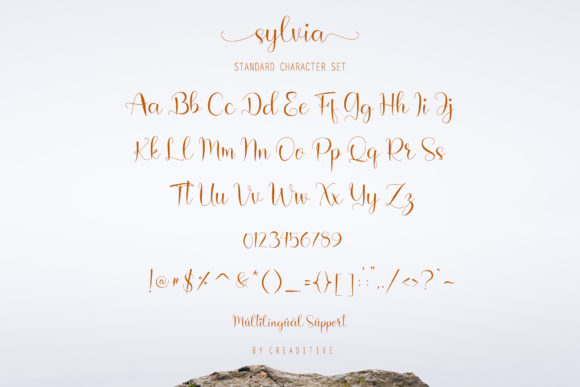 sylvia
STANDARD CHARACTER SET
Aa Bb Cc Dd Ee Ff Gg Hh Ii Jj
Kk Ll Mm Nn Oo Pp Qq Rr Ss
Tt Uu Vv Ww Xx Yy Zz
0123456789
!@#$%^&*()_={}[]:;'",./<>?`~
Múltilingùàl Süppört
BY CREADITIVE